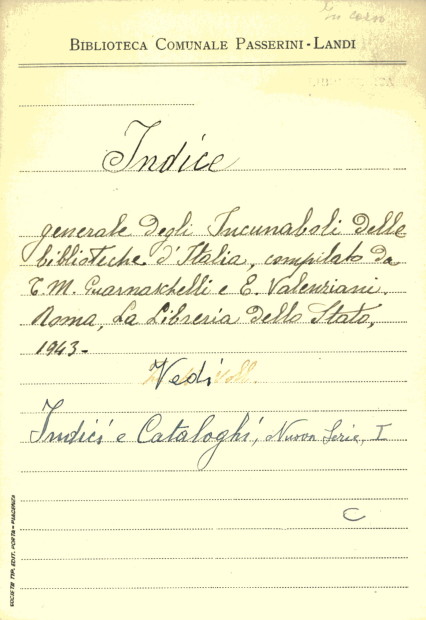 In corso
BIBLIOTECA COMUNALE PASSERINI-LANDI
Indice
generale degli Incunaboli delle
biblioteche d'Italia, compilato da
T. M. Guarnaschelli e E. Valenziani.
Roma, La Libreria dello Stato,
1943-
Vedi
Indici e Cataloghi, Nuova Serie, I
C
SOCIETÀ TIP. EDIT. PORTA - PIACENZA